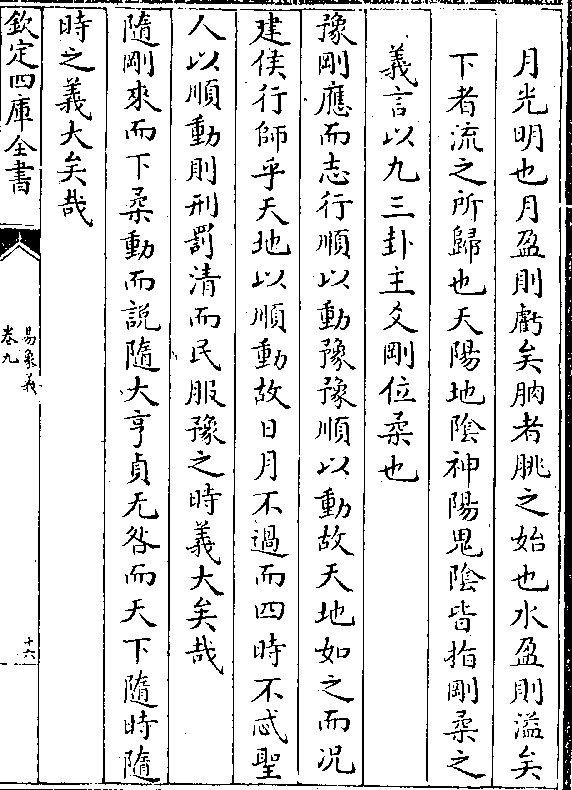 月光明也月盈則虧矣朒者朓之始也水盈則溢矣
下者流之所歸也天陽地陰神陽鬼陰皆指剛柔之
義言以九三卦主爻剛位柔也
豫剛應而志行順以動豫豫順以動故天地如之而況
建侯行師乎天地以順動故日月不過而四時不忒聖
人以順動則刑罰清而民服豫之時義大矣哉
隨剛來而下柔動而說隨大亨貞无咎而天下隨時隨
時之義大矣哉
欽定四庫全書
易象義
卷九
十六